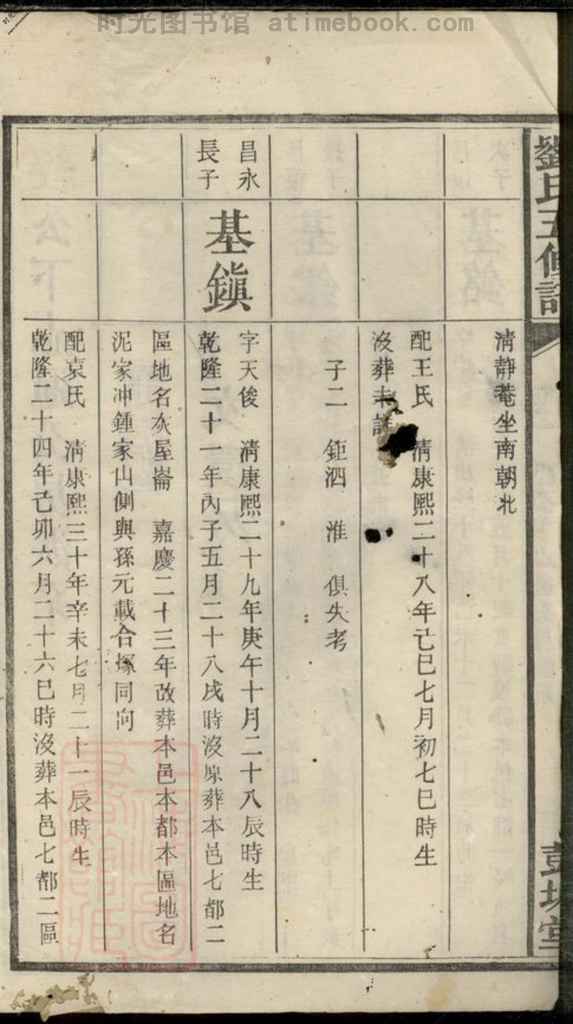 时光图书馆 atimebook.com
劉氏五修譜
清靜菴坐南朝北
配王氏 清康熙二十八年己巳七月初七巳時生
沒葬未詳
子二 鉅泗 淮 俱失考
昌永
長子
基鎮
字天俊 清康熙二十九年庚午十月二十八辰時生
乾隆二十一年丙子五月二十八戌時沒原葬本邑七都二
區地名灰屋崙 嘉慶二十三年改葬本邑本都本區地名
泥家冲鍾家山側與孫元載合塚同向
配袁氏 清康熙三十年辛未七月二十一辰時生
乾隆二十四年己卯六月二十六巳時沒葬本邑七都二區
彭城堂